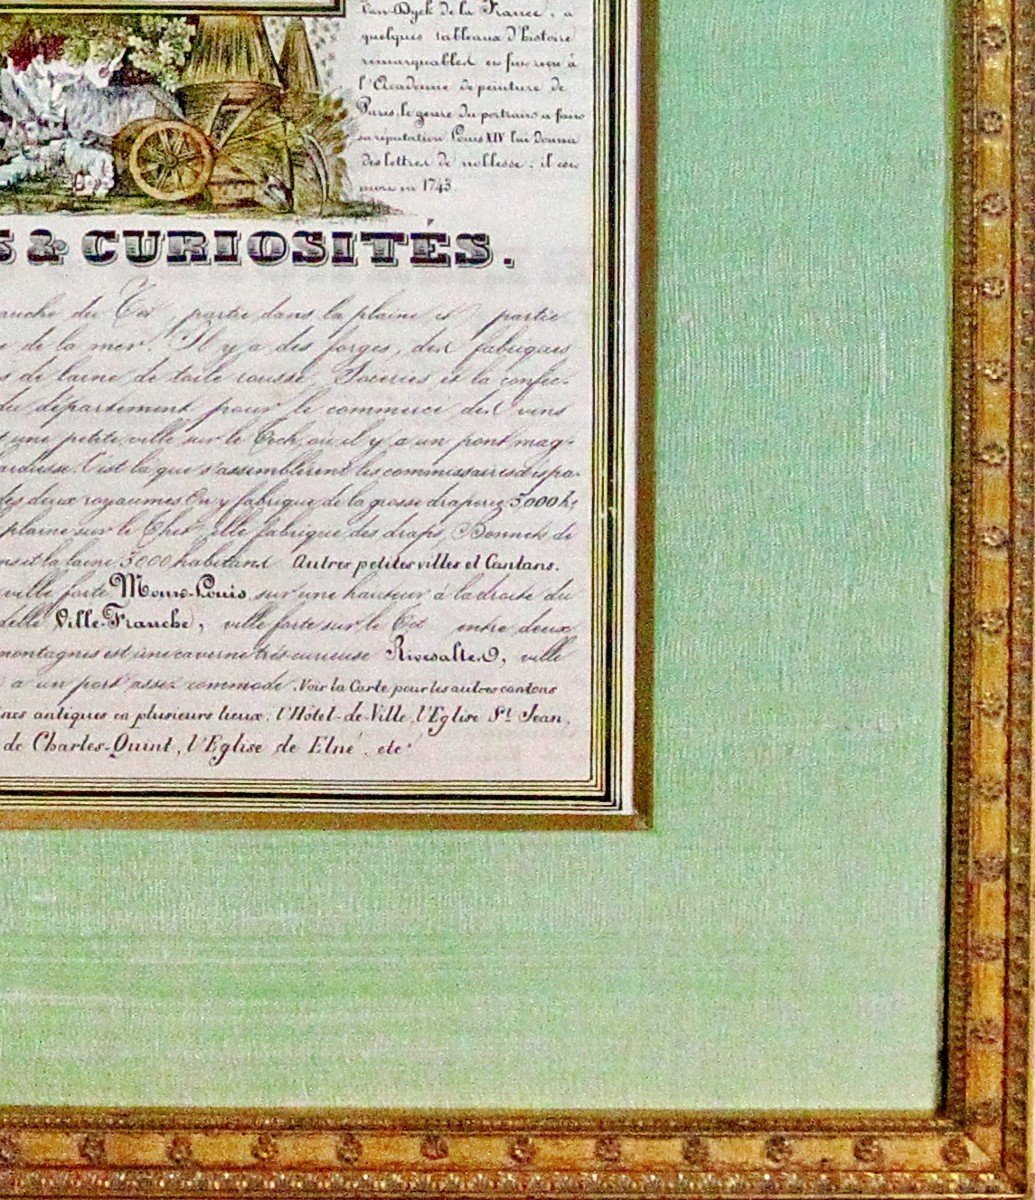 Van-Dyck de la France, a
quelques tableaux d'histoire
remarquables en fut reçu à
l'Académie de peinture de
Paris, le genre du portraits a faire
sa réputation Louis XIV lui donna
des lettres de noblesse, il est
mort en 1743
S & CURIOSITÉS.
auche du Têt, partie dans la plaine et partie
de la mer. Il y a des forges, des fabriques
de laine de toile rousse, et la confec-
du département pour le commerce des vins
une petite ville sur le Tech, ou il y a un pont mag-
C'est la que s'assemblèrent les commissaires
les deux royaumes On y fabrique de la grosse draperie 3000 h,
plaine sur le elle fabrique des draps, Bonnets de
et la laine 3000 habitans. Autres petites villes et Cantons.
ville forte Mont-Louis sur une hauteur à la droite du
Ville-Franche, ville forte sur le Têt entre deux
montagnes est une caverne très curieuse Rivesaltes, ville
a un port assez commode. Voir la Carte pour les autres cantons
antiques en plusieurs lieux, l'Hôtel-de-Ville, l'Eglise St Jean,
de Charles-Quint, l'Eglise de Elné, etc